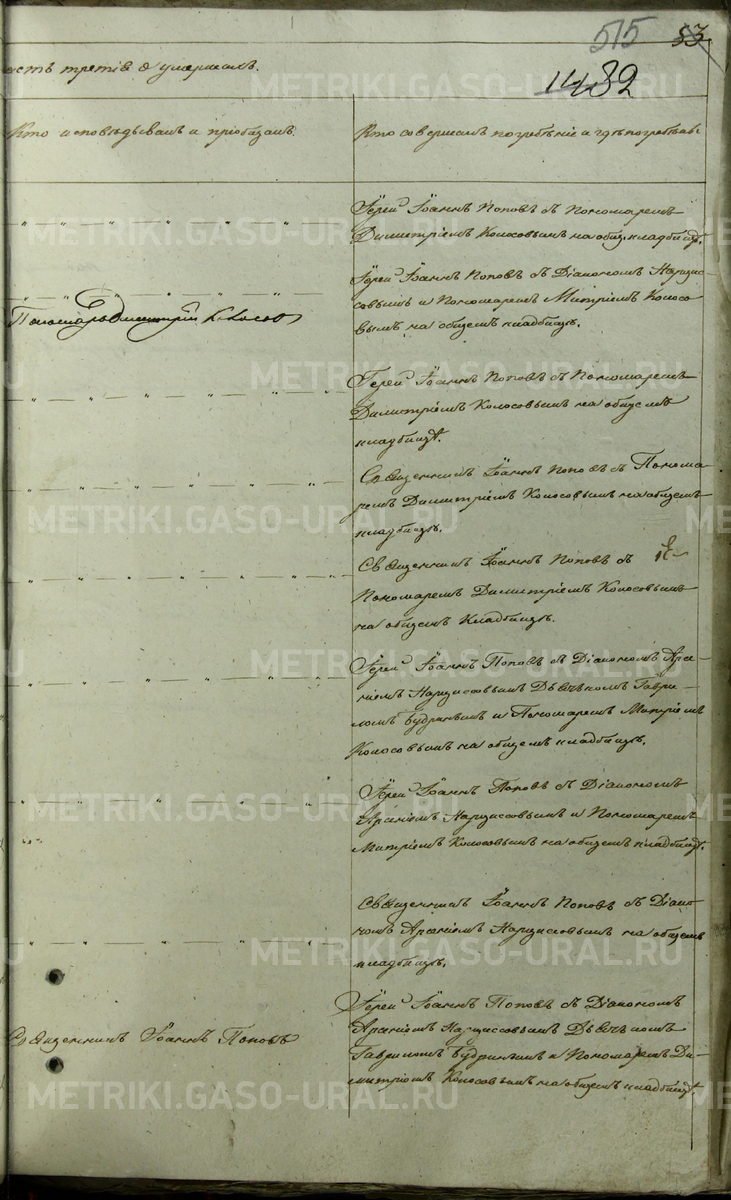 515 53
1432
асть третія о умершихъ.
Кто исповѣдывалъ и пріобщалъ.
Кто совершалъ погребеніе и гдѣ погребены
Іерей Іоаннъ Поповъ съ Пономаремъ
Димитріемъ Колосовымъ на общ. кладбищѣ.
Іерей Іоаннъ Поповъ съ Діакономъ Нарцис-
совымъ и Пономаремъ Митріемъ Колосо-
вымъ на общемъ кладбищѣ.
Пономарь Димитрій Колосовъ
Іерей Іоаннъ Поповъ съ Пономаремъ
Димитріемъ Колосовымъ на общемъ
кладбищѣ.
Священникъ Іоаннъ Поповъ съ Понома-
ремъ Димитріемъ Колосовымъ на общемъ
кладбищѣ.
Священникъ Іоаннъ Поповъ съ
Пономаремъ Димитріемъ Колосовымъ
на общемъ Кладбищѣ.
Іерей Іоаннъ Поповъ съ Діакономъ Арсе-
ніемъ Нарциссовымъ Дьячкомъ Гаври-
ломъ Будринымъ и Пономаремъ Митріемъ
Колосовымъ на общемъ кладбищѣ.
Іерей Іоаннъ Поповъ съ Діакономъ
Арсеніемъ Нарциссовымъ и Пономаремъ
Митріемъ Колосовымъ на общемъ кладбищѣ.
Священникъ Іоаннъ Поповъ съ Діако-
номъ Арсеніемъ Нарциссовымъ на общемъ
кладбищѣ.
Священникъ Іоаннъ Поповъ
Іерей Іоаннъ Поповъ съ Діакономъ
Арсеніемъ Нарциссовымъ Дьячкомъ
Гавриломъ Будринымъ и Пономаремъ Ди-
митріемъ Колосовымъ на общемъ кладбищѣ.
METRIKI.GASO-URAL.RU